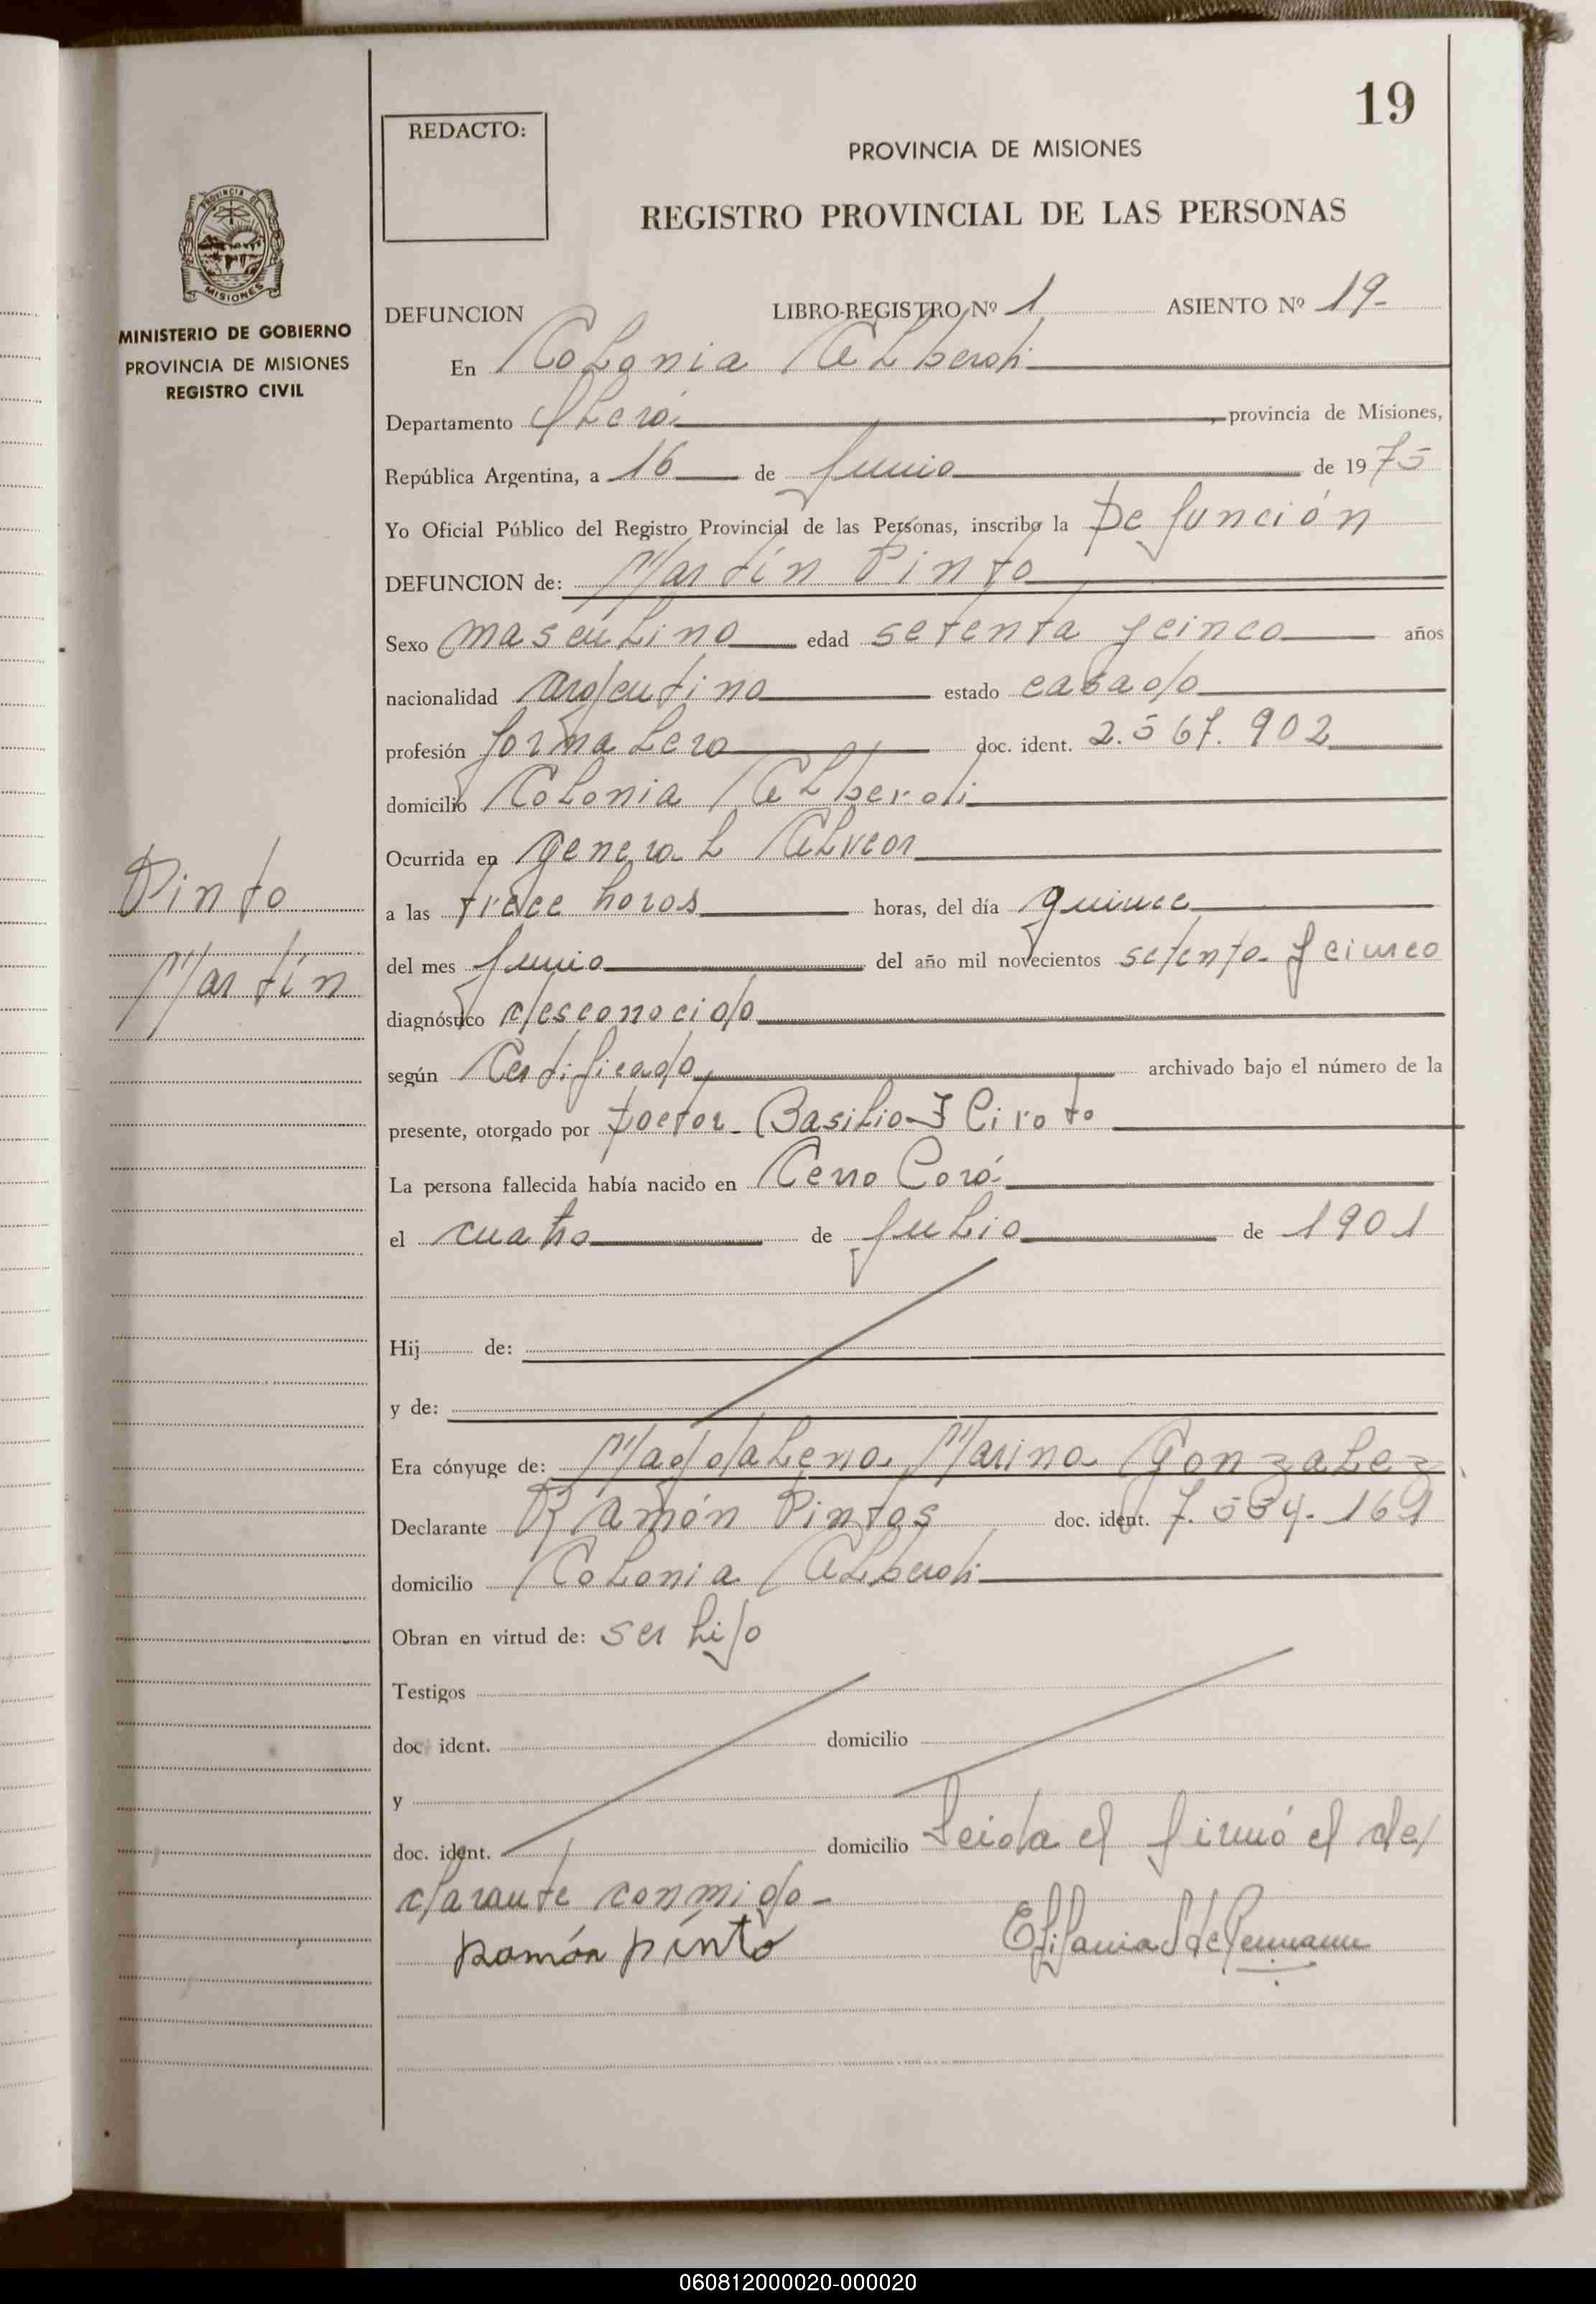 19
REDACTO:
PROVINCIA DE MISIONES
REGISTRO PROVINCIAL DE LAS PERSONAS
PROVINCIA DE
MISIONES
MINISTERIO DE GOBIERNO
PROVINCIA DE MISIONES
REGISTRO CIVIL
DEFUNCION LIBRO-REGISTRO Nº 1 ASIENTO Nº 19-
En Colonia Alberdi
Departamento , provincia de Misiones,
República Argentina, a 16 de Junio de 1975
Yo Oficial Público del Registro Provincial de las Personas, inscribo la Defunción
DEFUNCION de: Martín Pinto
Sexo masculino edad setenta y cinco años
nacionalidad argentino estado casado
profesión Jornalero doc. ident. 2.567.902
domicilio Colonia Alberdi
Ocurrida en General Alvear
a las trece horas horas, del día quince
del mes Junio del año mil novecientos setenta y cinco
diagnóstico desconocido
según Certificado archivado bajo el número de la
presente, otorgado por Doctor Basilio
La persona fallecida había nacido en Cerro Corá
el cuatro de Julio de 1901
Hij de:
y de:
Era cónyuge de: Magdalena Marina Gonzalez
Declarante Ramón Pintos doc. ident. 7.534.161
domicilio Colonia Alberdi
Obran en virtud de: ser hijo
Testigos
doc ident. domicilio
y
doc. ident. domicilio Leida el firmó el de/
clarante conmigo-
Ramón pinto
Pinto
Martín
060812000020-000020